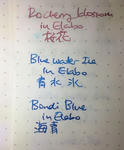 blossom
in Elabo
桜花
Blue water Ice
in Elabo
青水氷
Bondi Blue
in Elabo
海青